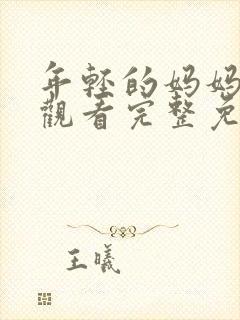 年轻的妈妈
觀看完整免
王曦